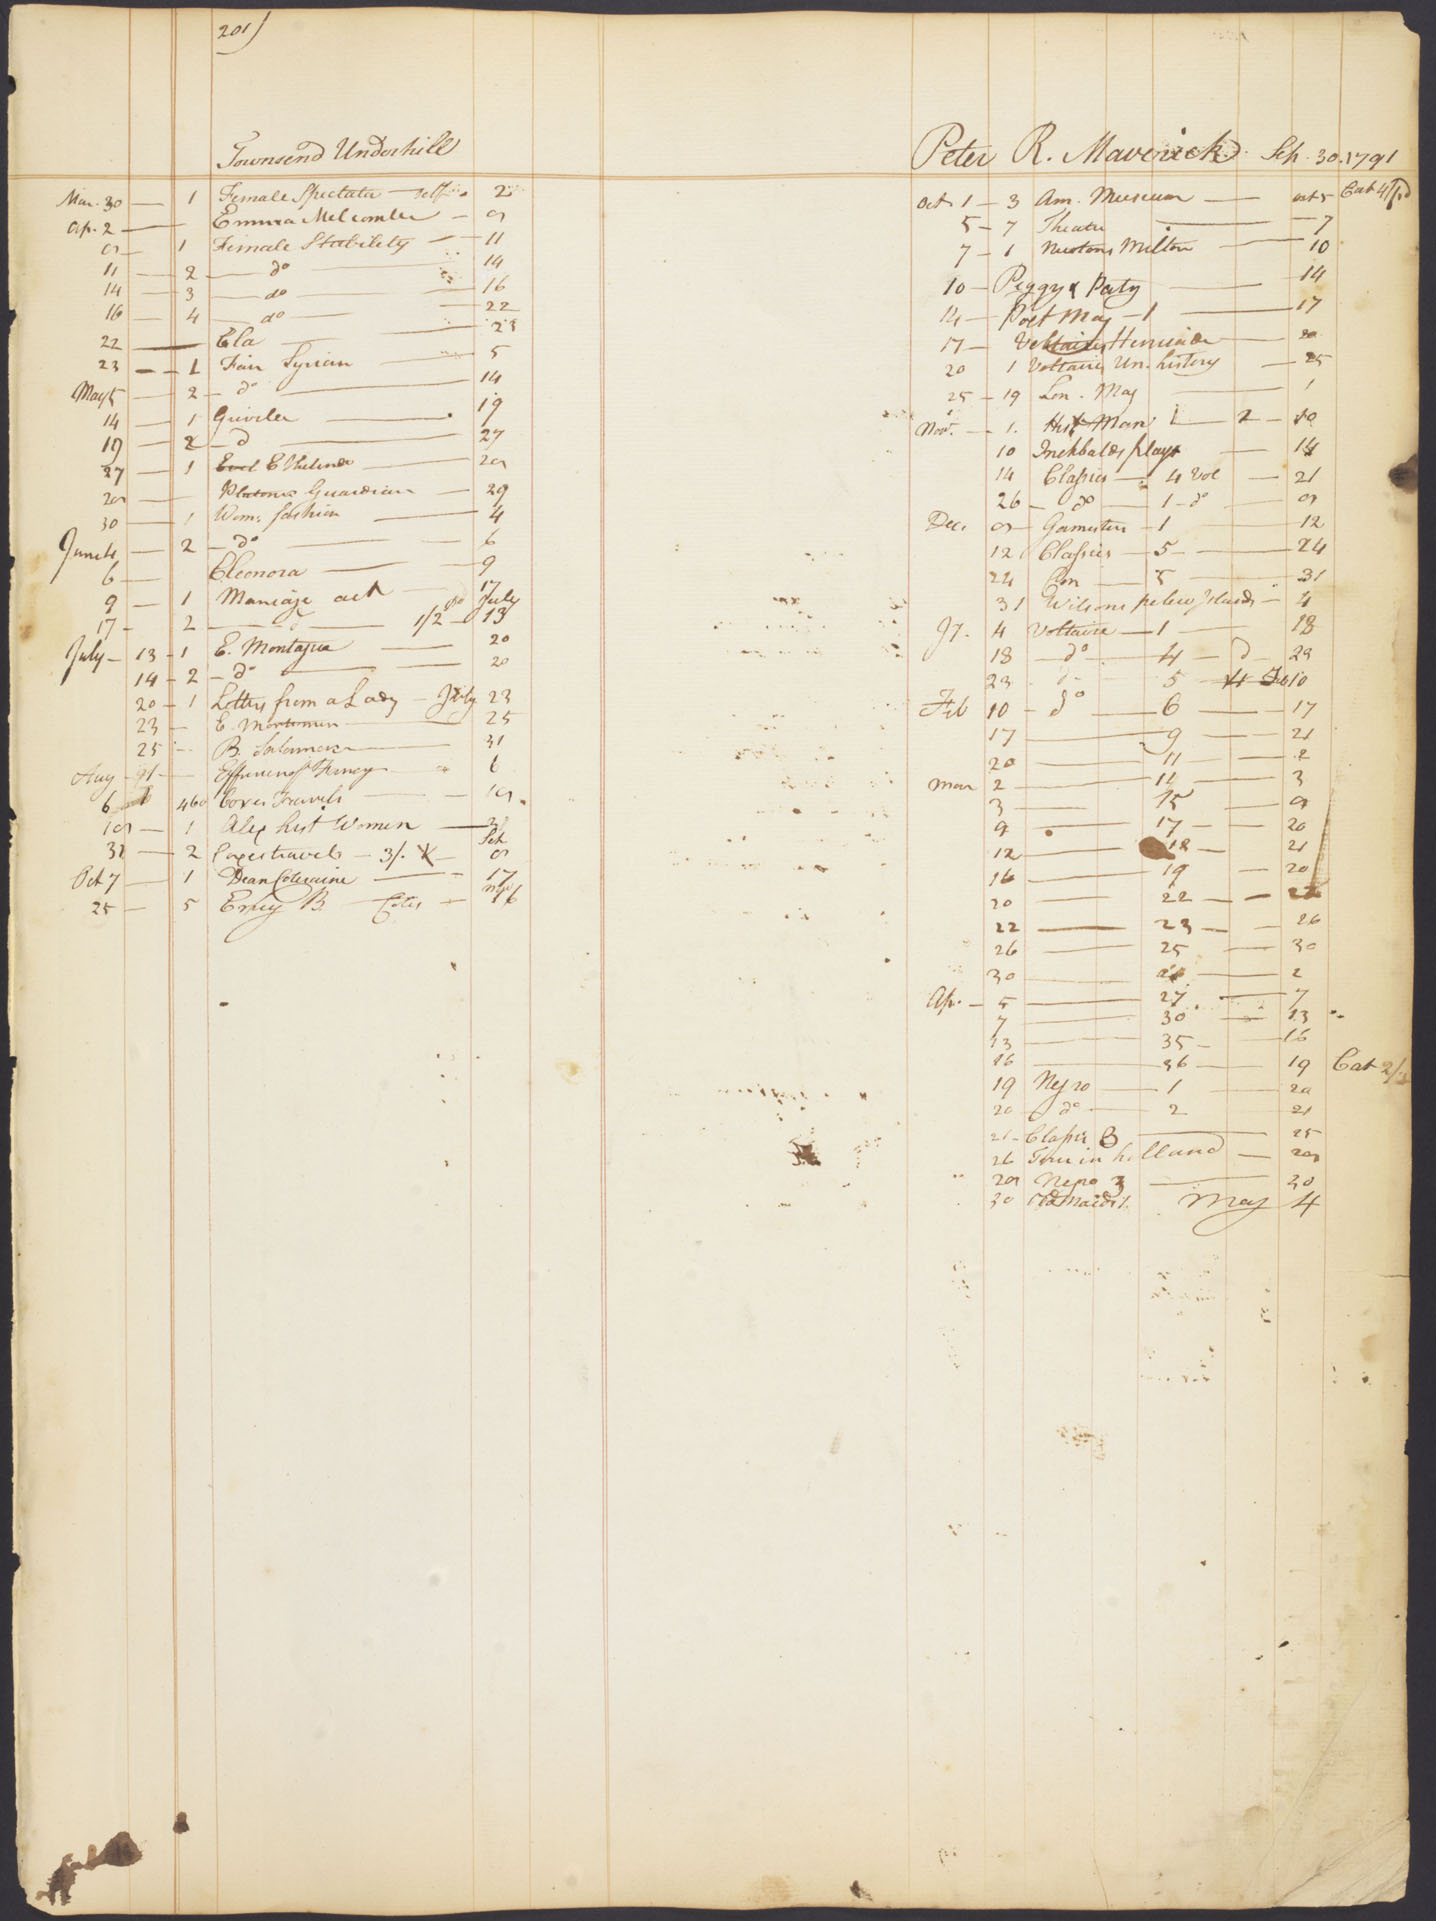 201)
Townsend Underhill
Mar. 30 — 1 Female Spectator — 2
Ap. 2 — Emma Melcomber —
1 Female Stability — 11
11 — 2 — do — 14
14 — 3 — do — 16
16 — 4 — do — 22
22 — Ela — 23
23 — 1 Fair Syrian — 5
May 5 — 2 — do — 14
14 — 1 Greville — 19
19 — 2 — d — 27
27 — 1 Ethelinde —
Platonic Guardian — 29
30 — 1 Wom: fashion — 4
June 4 — 2 — do — 6
6 — Eleonora — 9
9 — 1 Marriage act — 17
17 — 2 — 1/2 — July 13
July — 13 — 1 E. Montague — 20
14 — 2 — do — 20
20 — 1 Letters from a Lady — July 23
23 — E. — 25
25 — B. — 31
Aug — 6
6 Coxes Travels —
1 Alex hist Women —
31 — 2 Coxes travels — 3/. — Set
Oct 7 — 1 Dean Coleraine — 17
25 — 5 B —
Peter R. Maverick Sep. 30. 1791
Oct 1 — 3 Am. Museum — oct 5 Cat
5 — 7 Theatre — 7
7 — 1 Newtons Milton — 10
10 — Peggy & Paty — 14
14 — Poet Mag — 1 — 17
17 — Voltaires Henriade — 20
20 1 Voltaires Un. history — 25
25 — 19 Lon. Mag — 1
Nov. — 1. Hist Man 1 — 2 — 10
10 Inchbalds plays — 14
14 Classics — 4 Vol — 21
26 — do — 1 — do —
Dec. Gamesters — 1 — 12
12 Classics — 5 — 24
24 Con — 5 — 31
31 Wilsons pelew Islands — 4
Jy. 4 Voltaire — 1 — 18
18 — do — 4 — d — 23
23 5 — 4 Feb 10
Feb 10 — do — 6 — 17
17 — 9 — 21
20 — 11 — 2
Mar 2 — 14 — 3
3 — 15 —
9 — 17 — 20
12 — 18 — 21
16 — 19 — 20
20 — 22 — 22
22 — 23 — 26
26 — 25 — 30
30 — — 2
Ap. — 5 — 27 — 7
7 — 30 — 13
13 — 35 — 16
16 — 36 — 19 Cat 2/
19 Negro — 1 — 20
20 — do — 2 — 21
21 — Classic B — 25
26 Tour in holland —
Negro 3 — 30
30 Old Maids 1. May 4